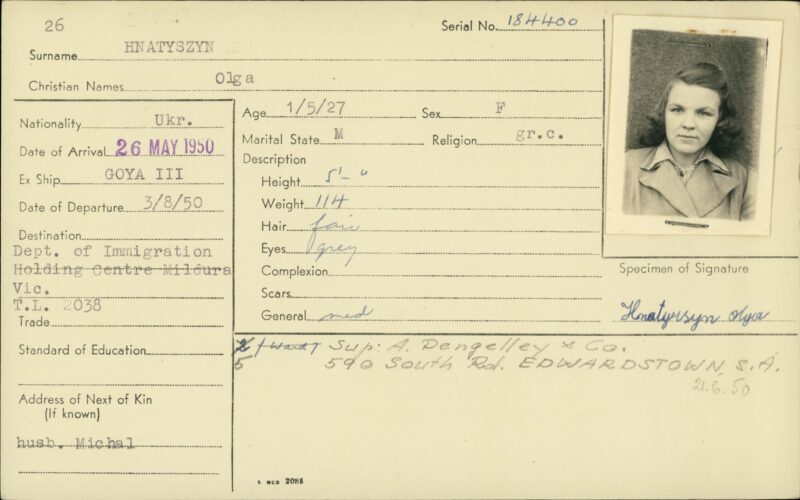 26
Serial No. 184400
Surname HNATYSZYN
Christian Names Olga
Nationality Ukr.
Date of Arrival 26 MAY 1950
Ex Ship GOYA III
Date of Departure 3/8/50
Destination
Dept. of Immigration
Holding Centre Mildura
Vic.
T.L. 2038
Trade
Standard of Education
Address of Next of Kin
(If known)
husb. Michal
Age 1/5/27 Sex F
Marital State M Religion gr.c.
Description
Height 5'-"
Weight 114
Hair fair
Eyes grey
Complexion
Scars
General med
Specimen of Signature
Hnatyszyn Olga
Sup: A. Dengelley & Co.
5 590 South Rd. EDWARDSTOWN, S.A.
21.6.50
5 MCO 2085